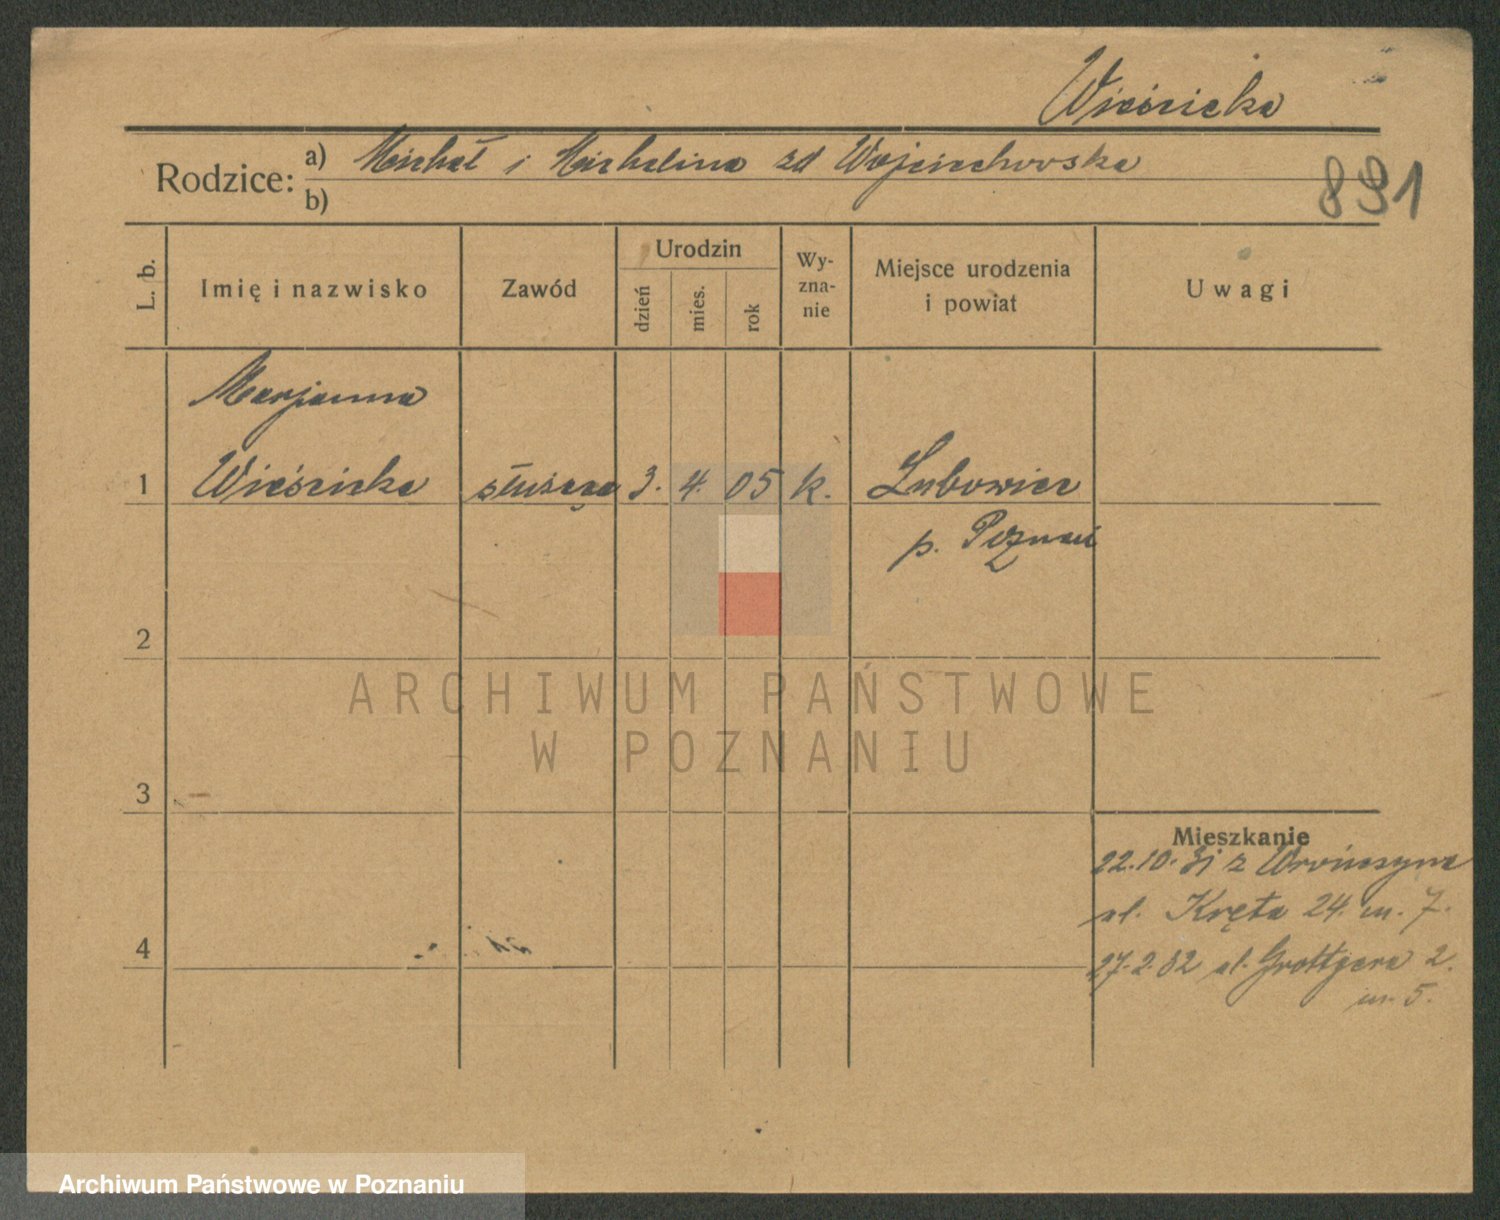 Wieśnicka
Rodzice: a) Michał i Michalina zd Wojciechowska
b)
891
L. b.
Imię i nazwisko
Zawód
Urodzin
dzień
mies.
rok
Wy-
zna-
nie
Miejsce urodzenia
i powiat
Uwagi
Marjanna
1 Wieśnicka służąca 3. 4. 05 k. Lubowice
p. Poznań
2
3
4
ARCHIWUM PAŃSTWOWE
W POZNANIU
Mieszkanie
22.10.31 z
ul. Kręta 24. m. 7.
27.2.32 ul. Grottgera 2.
m. 5.
Archiwum Państwowe w Poznaniu